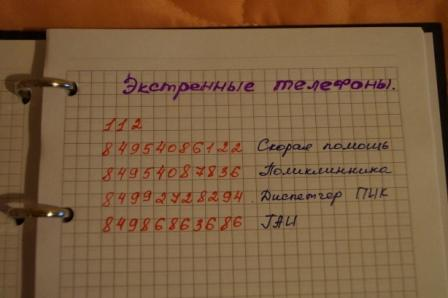 Экстренные телефоны.
112
84954086122 Скорая помощь
84954087836 Поликлинника
84992728294 Диспетчер ПИК
84986863686 ГАИ